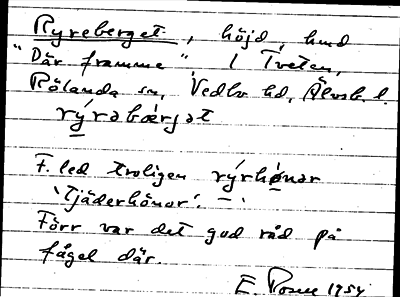 Ryreberget, höjd, hmd
"Där framme" i Tveten,
Rölanda sn, Vedbo hd, Älvsb. l.
rýrəbærjət
F. led troligen rýrhönər
'tjäderhönor'.
Förr var det god råd på
fågel där.
E. 1954